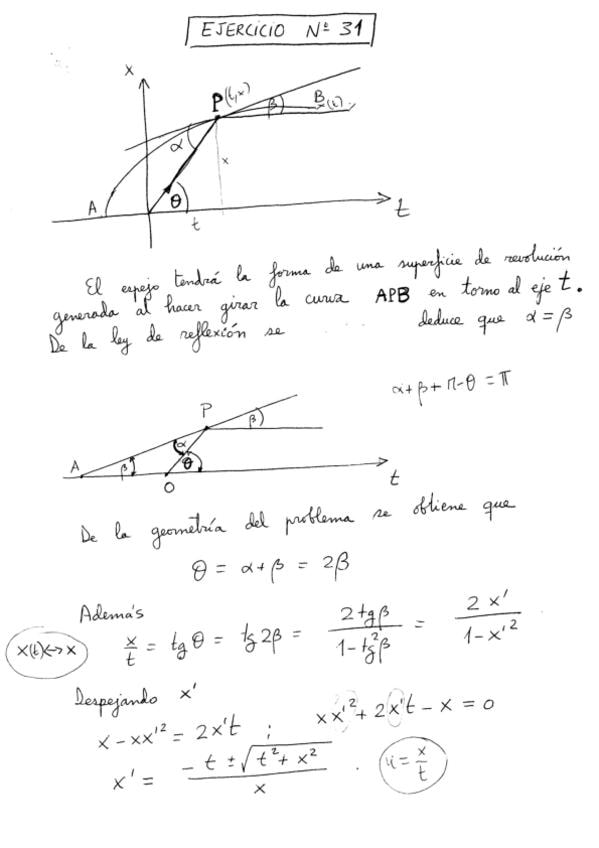 EJERCICIO Nº 31
x
P(t,x)
β
B
x(t)
α
x
A
θ
t
t
El espejo tendrá la forma de una superficie de revolución
generada al hacer girar la curva APB en torno al eje t.
De la ley de reflexión se deduce que α = β
α+β+π-θ = π
P
β
α
A
β
θ
O
t
De la geometría del problema se obtiene que
θ = α+β = 2β
Además
x(t)↔x
x/t = tg θ = tg 2β = 2tgβ/(1-tg²β) = 2x'/(1-x'²)
Despejando x'
x - xx'² = 2x't ; xx'² + 2x't - x = 0
x' = (-t ± √(t²+x²))/x . u = x/t